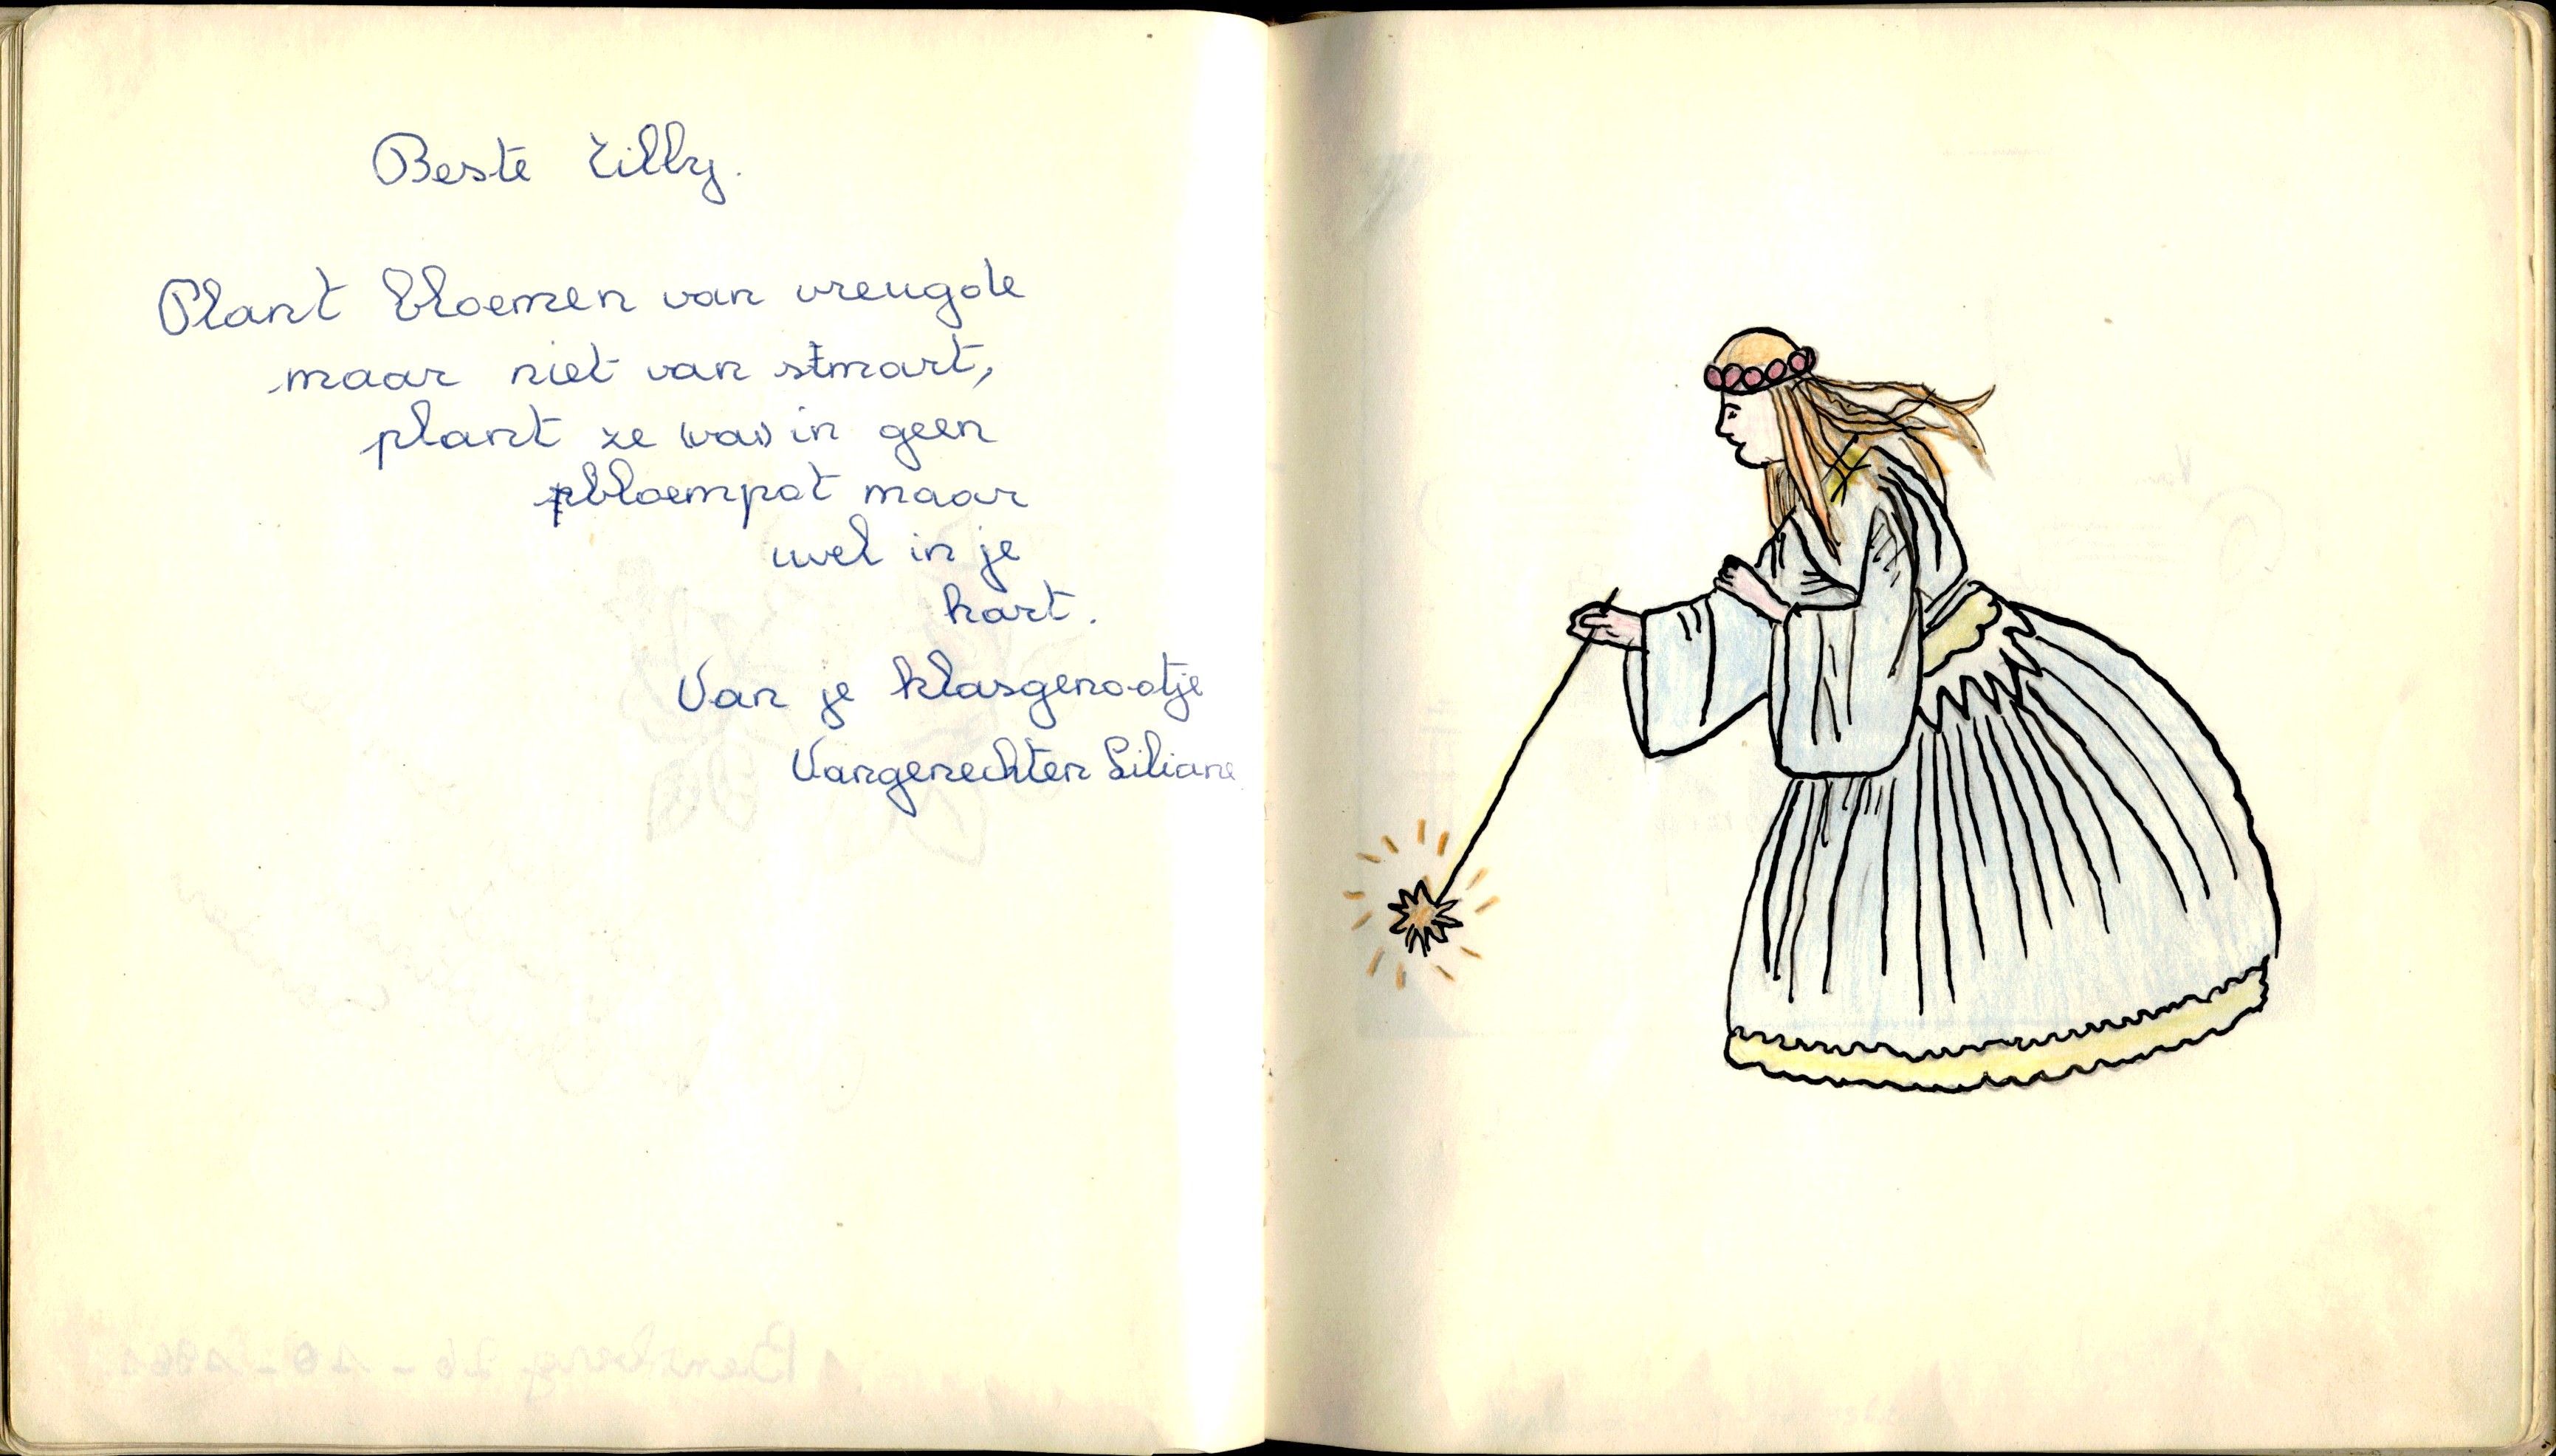 Beste Lilly.
Plant bloemen van vreugde
maar niet van smart,
plant ze (van) in geen
bloempot maar
wel in je
hart.
Van je klasgenootje
Vangenechten Liliane